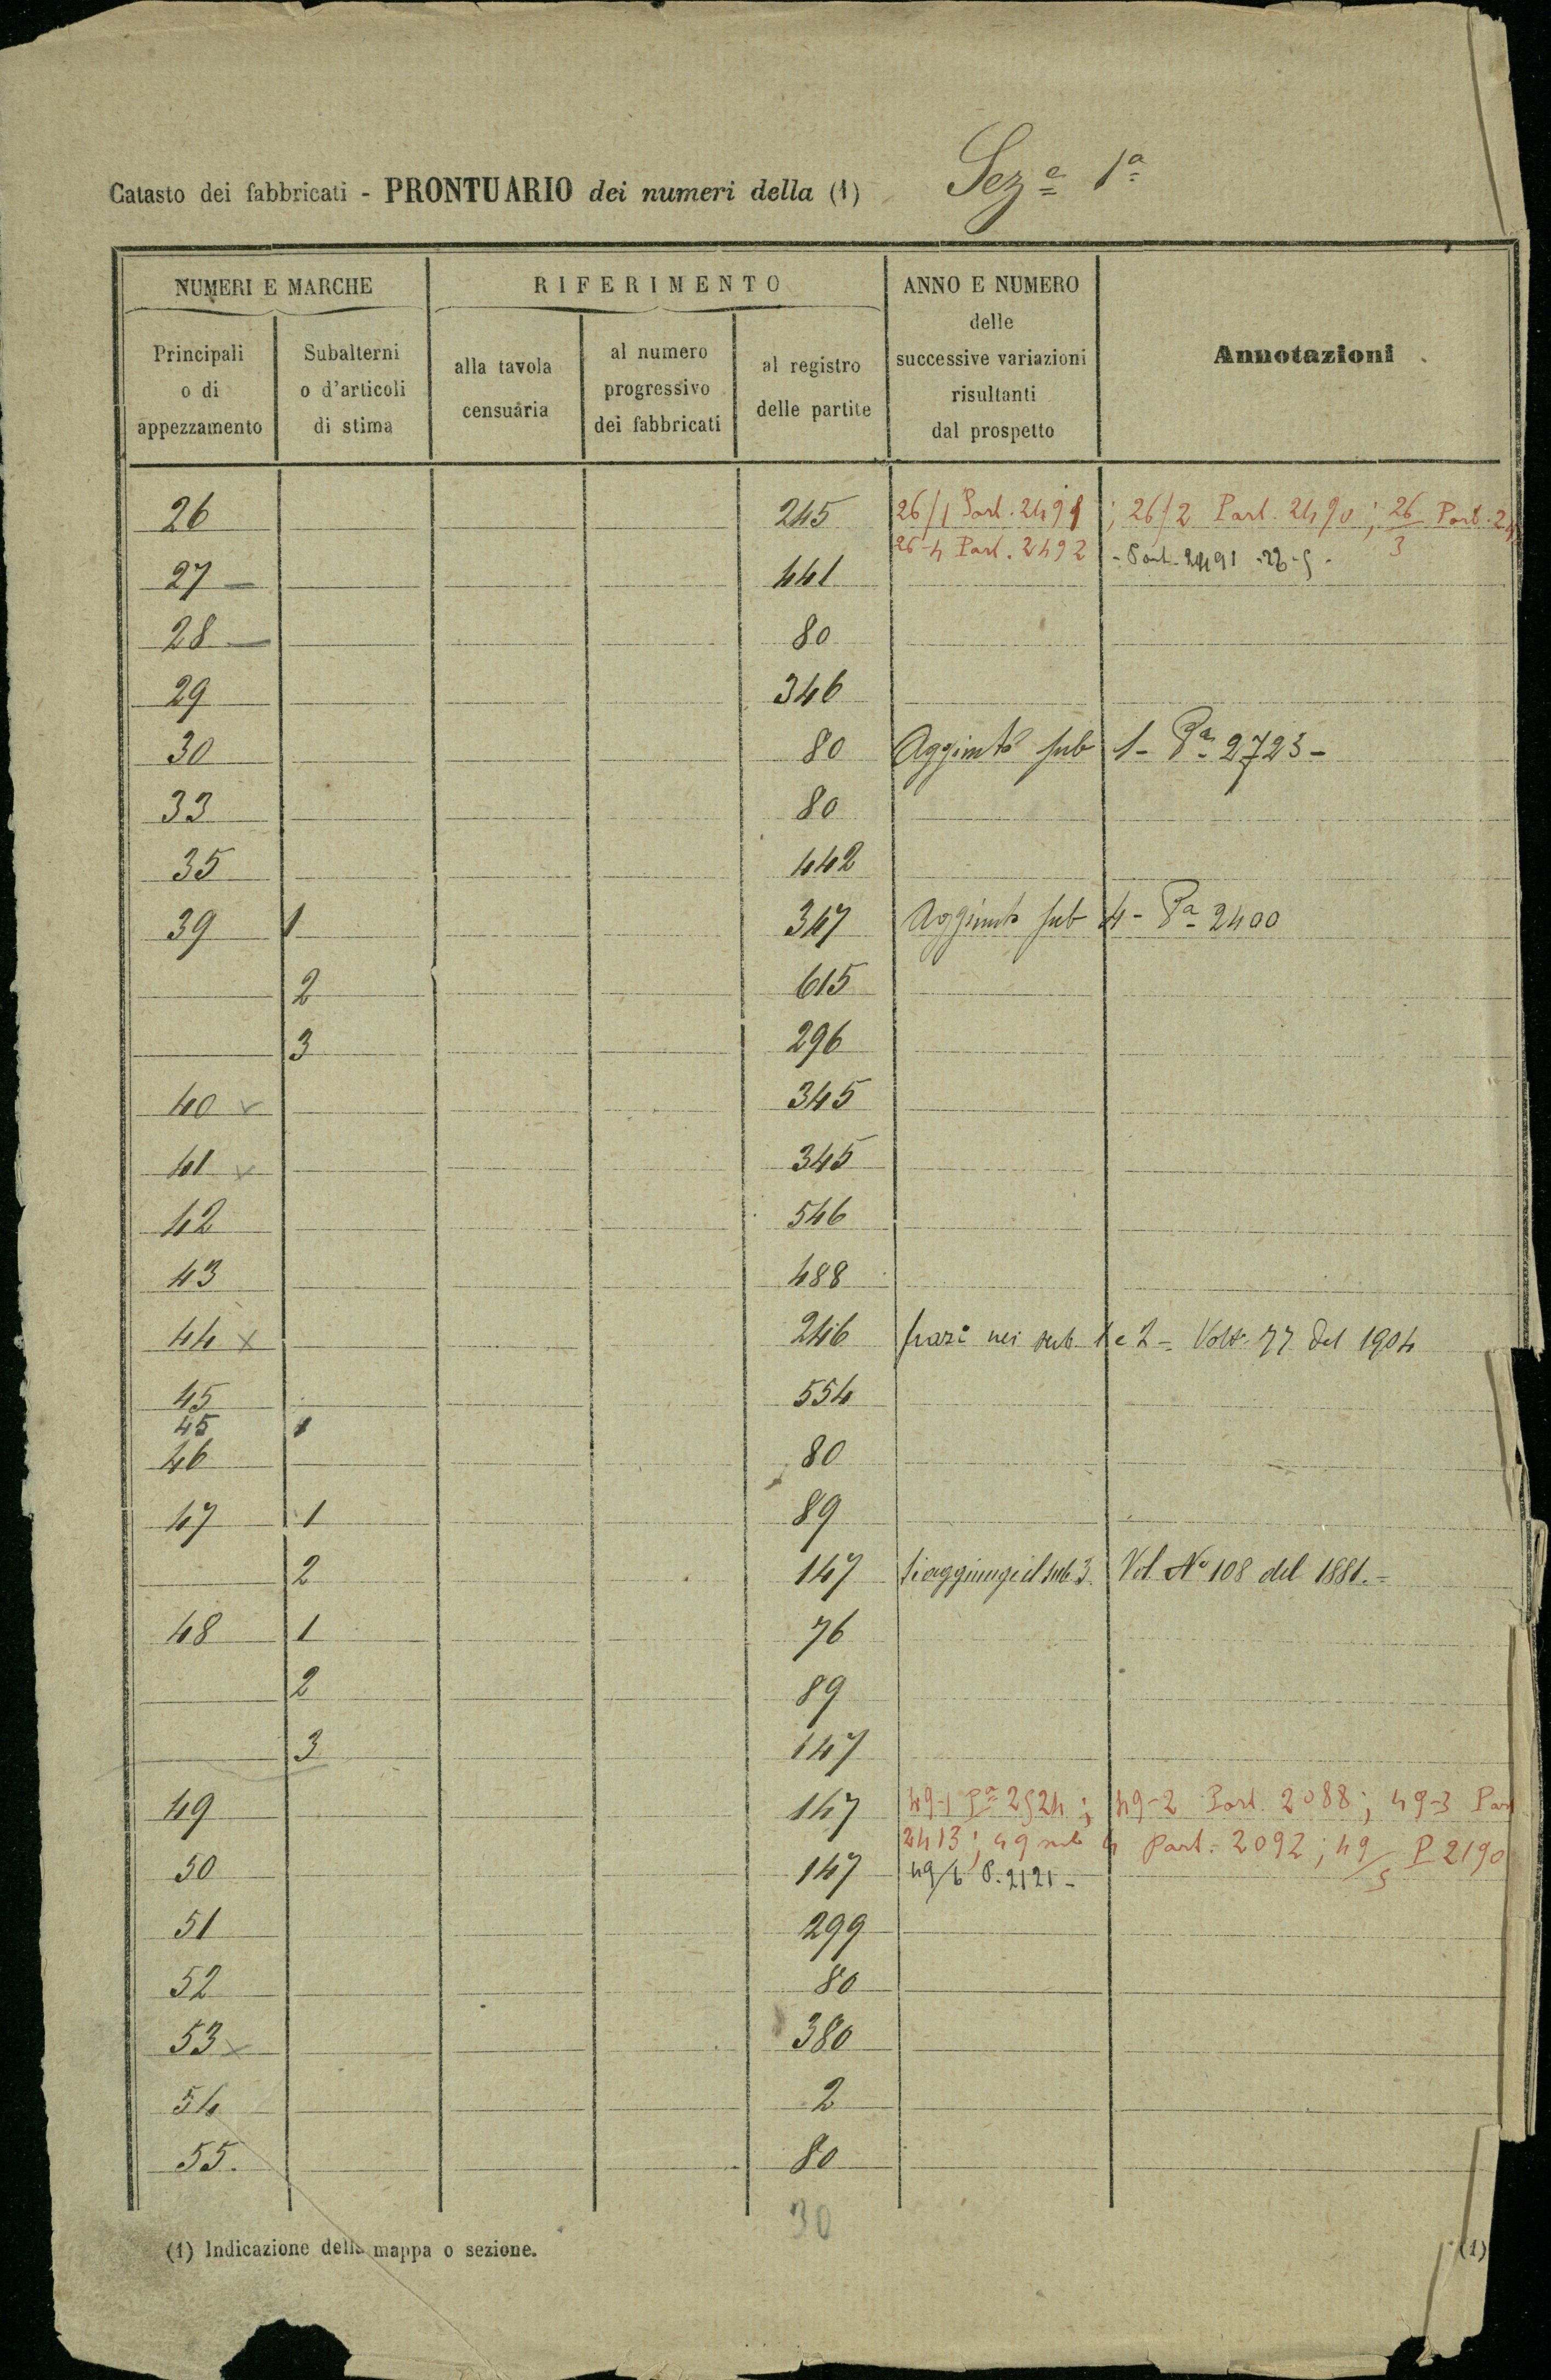 Catasto dei fabbricati - PRONTUARIO dei numeri della (1) Sez.e 1a
NUMERI E MARCHE
RIFERIMENTO
ANNO E NUMERO
delle
successive variazioni
risultanti
dal prospetto
Annotazioni
Principali
o di
appezzamento
Subalterni
o d'articoli
di stima
alla tavola
censuaria
al numero
progressivo
dei fabbricati
al registro
delle partite
26 245 26/1 Part. 2491 ; 26/2 Part. 2490 ; 26/3 Part.
26-4 Part. 2492 - Part. 2491 -26-5-
27 441
28 80
29 346
30 80 Aggiunto sub 1 - Pa 2723 -
33 80
35 442
39 1 347 Aggiunto sub 4 - Pa 2400
2 615
3 296
40 345
41 x 345
42 546
43 488
44 x 246 nei sub. 1 e 2 = 77 del 1904
45 554
45 1
46 80
47 1 89
2 147 si aggiunge il sub 3. Vol. No 108 del 1881. =
48 1 76
2 89
3 147
49 147 49-1 Pa 2524 ; 49-2 Part. 2088 ; 49-3 Part
2413 ; 49 sub 4 Part. 2092 ; 49/5 P 2190
50 147 49/6 P. 2121 -
51 299
52 80
53 x 380
54 2
55. 80
30
(1) Indicazione della mappa o sezione.
(1)